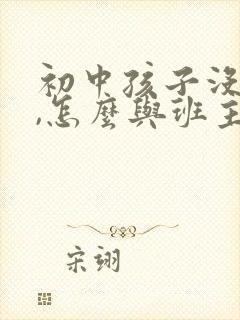 初中孩子没
,怎麽與班主
宋翊